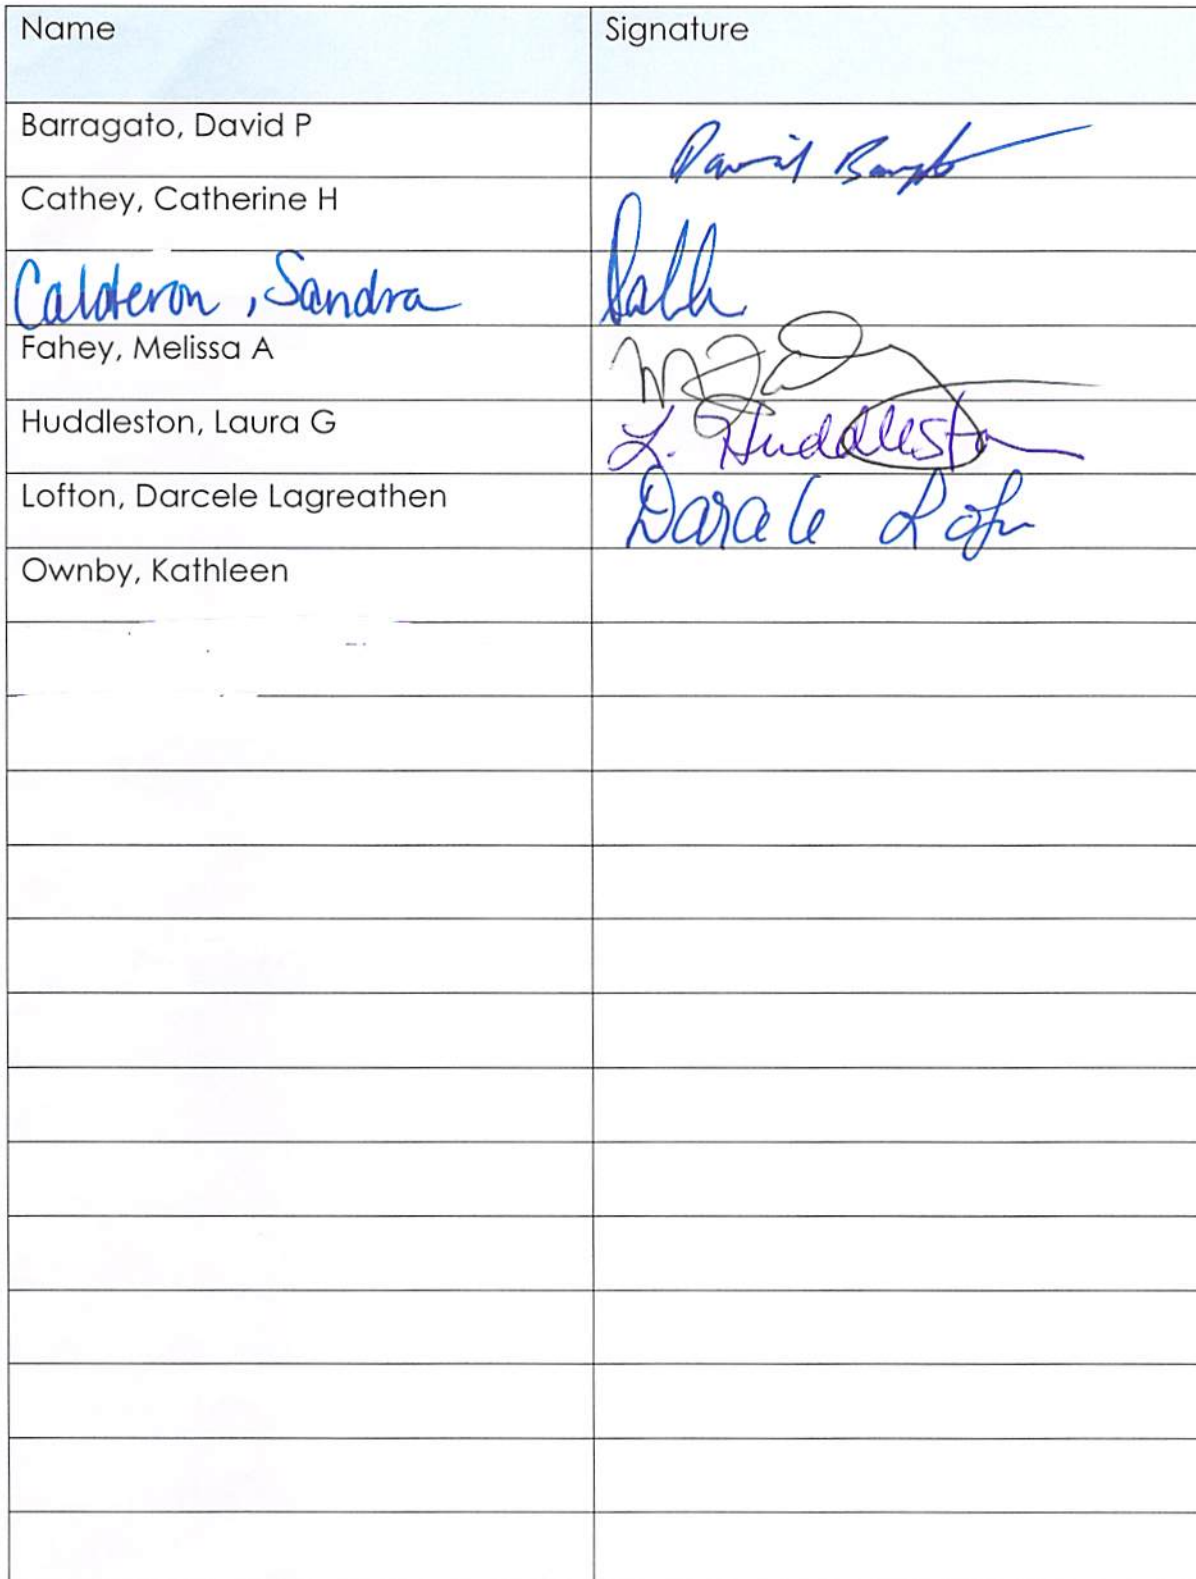 Name Signature
Barragato, David P
Cathey, Catherine H
Calderon, Sandra
Fahey, Melissa A
Huddleston, Laura G L. Huddleston
Lofton, Darcele Lagreathen
Ownby, Kathleen